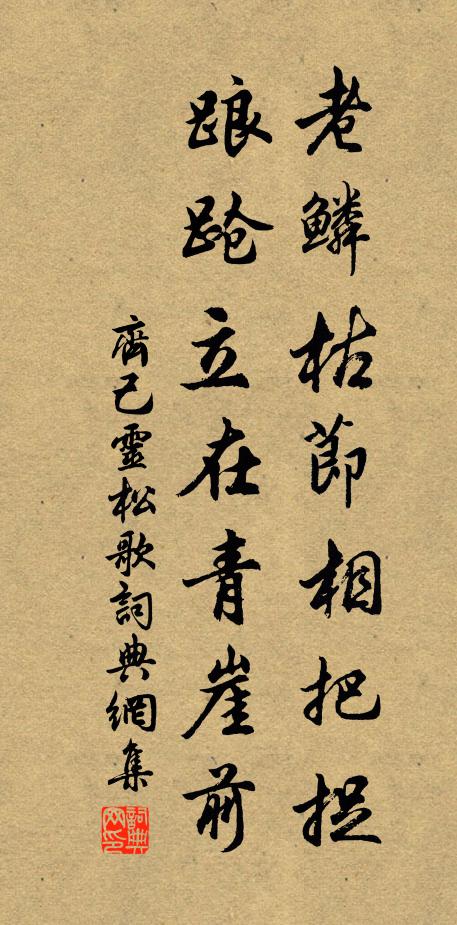 老鱗枯節相把捉
踉蹌立在青崖前
齊己靈松歌詞典網集
詞典网印